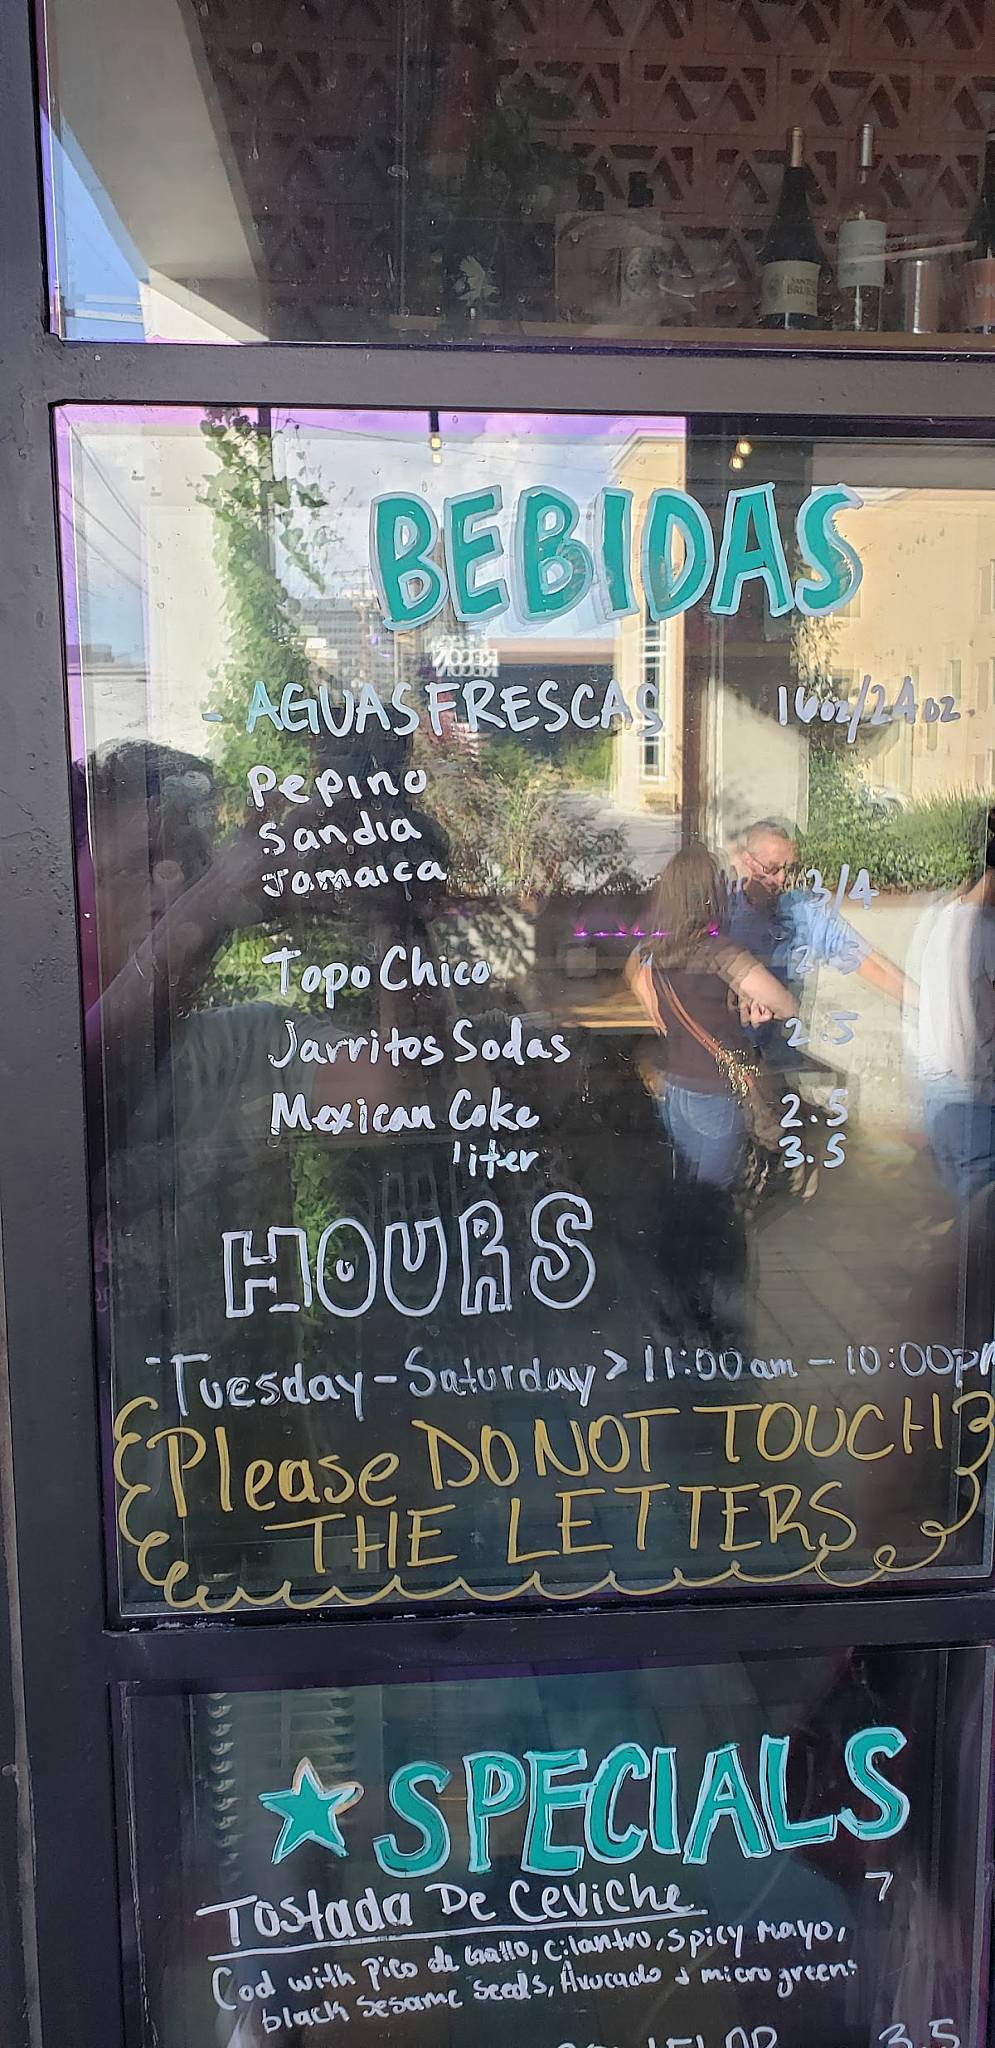 BEBIDAS
- AGUAS FRESCAS 16oz/24oz
Pepino
Sandia
Jamaica 3/4
Topo Chico 2.5
Jarritos Sodas 2.5
Mexican Coke 2.5
liter 3.5
HOURS
-Tuesday-Saturday > 11:00am - 10:00p
Please DO NOT TOUCH
THE LETTERS
SPECIALS
Tostada De Ceviche 7
Cod with pico de Gallo, cilantro, spicy mayo,
black sesame seeds, Avocado & micro greens
3.5